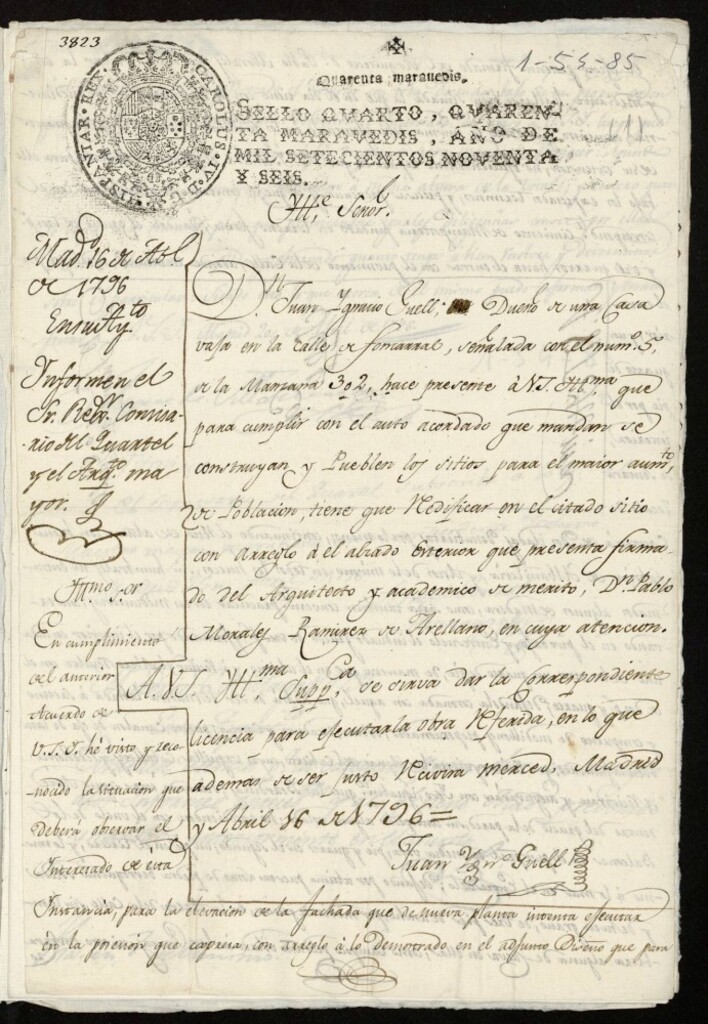 3823
1-55-85
CAROLUS IV D G HISPANIAR REX
Quarenta maravedis.
SELLO QVARTO, QVAREN-
TA MARAVEDIS, AÑO DE
MIL SETECIENTOS NOVENTA
Y SEIS.
Yll.e Señor.
Mad.d 16 de Abl
de 1796
En su Ay.to
Informen el
Sr. Rex.r Comisa-
rio del Quartel
y el Arq.o ma
yor.
D.n Juan Ygnacio Guell; Dueño de una Casa
vaja en la Calle de foncarral, señalada con el num.o 5,
de la Manzana 302, hace presente à V.S. Yll.ma que
para cumplir con el auto acordado que mandan se
construyan y Pueblen los sitios para el maior aum.to,
de Poblacion, tiene que Redificar en el citado sitio
con arreglo á el alzado exterior que presenta firma-
do del Arquitecto y academico de merito, D.n Pablo
Morales Ramirez de Arellano, en cuya atencion.
A. V.S. Yll.ma Supp.ca se sirva dar la Correspondiente
licencia para ejecutar la obra Referida, en lo que
ademas de ser justo Recivira merced, Madrid
y Abril 16 de 1796=
Juan Yg.o Guell
Yllmo Sor
En cumplimiento
del anterior
Acuerdo de
V.S.Y. hé visto y reco-
nocido la situacion que
deberá observar el
Interesado de esta
Instancia, para la elevacion de la fachada que de nueva planta intenta ejecutar
en la posesion que expresa, con arreglo á lo demostrado en el adjunto Diseño que para